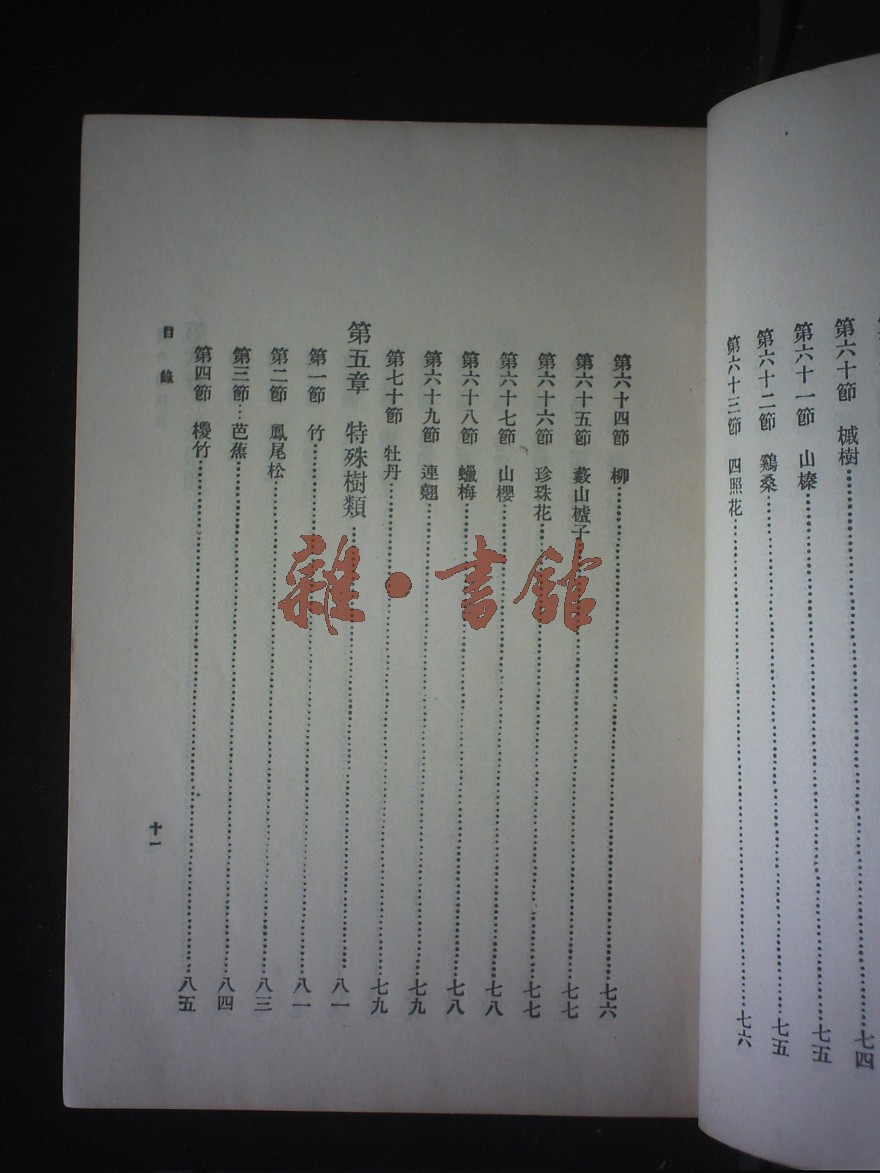 第六十節 槭樹……七四
第六十一節 山榛……七五
第六十二節 鷄桑……七五
第六十三節 四照花……七六
第六十四節 柳……七六
第六十五節 藪山樝子……七七
第六十六節 珍珠花……七七
第六十七節 山櫻……七八
第六十八節 蠟梅……七八
第六十九節 連翹……七九
第七十節 牡丹……七九
第五章 特殊樹類……八一
第一節 竹……八一
第二節 鳳尾松……八三
第三節 芭蕉……八四
第四節 椶竹……八五
目錄
十一
雜·書館